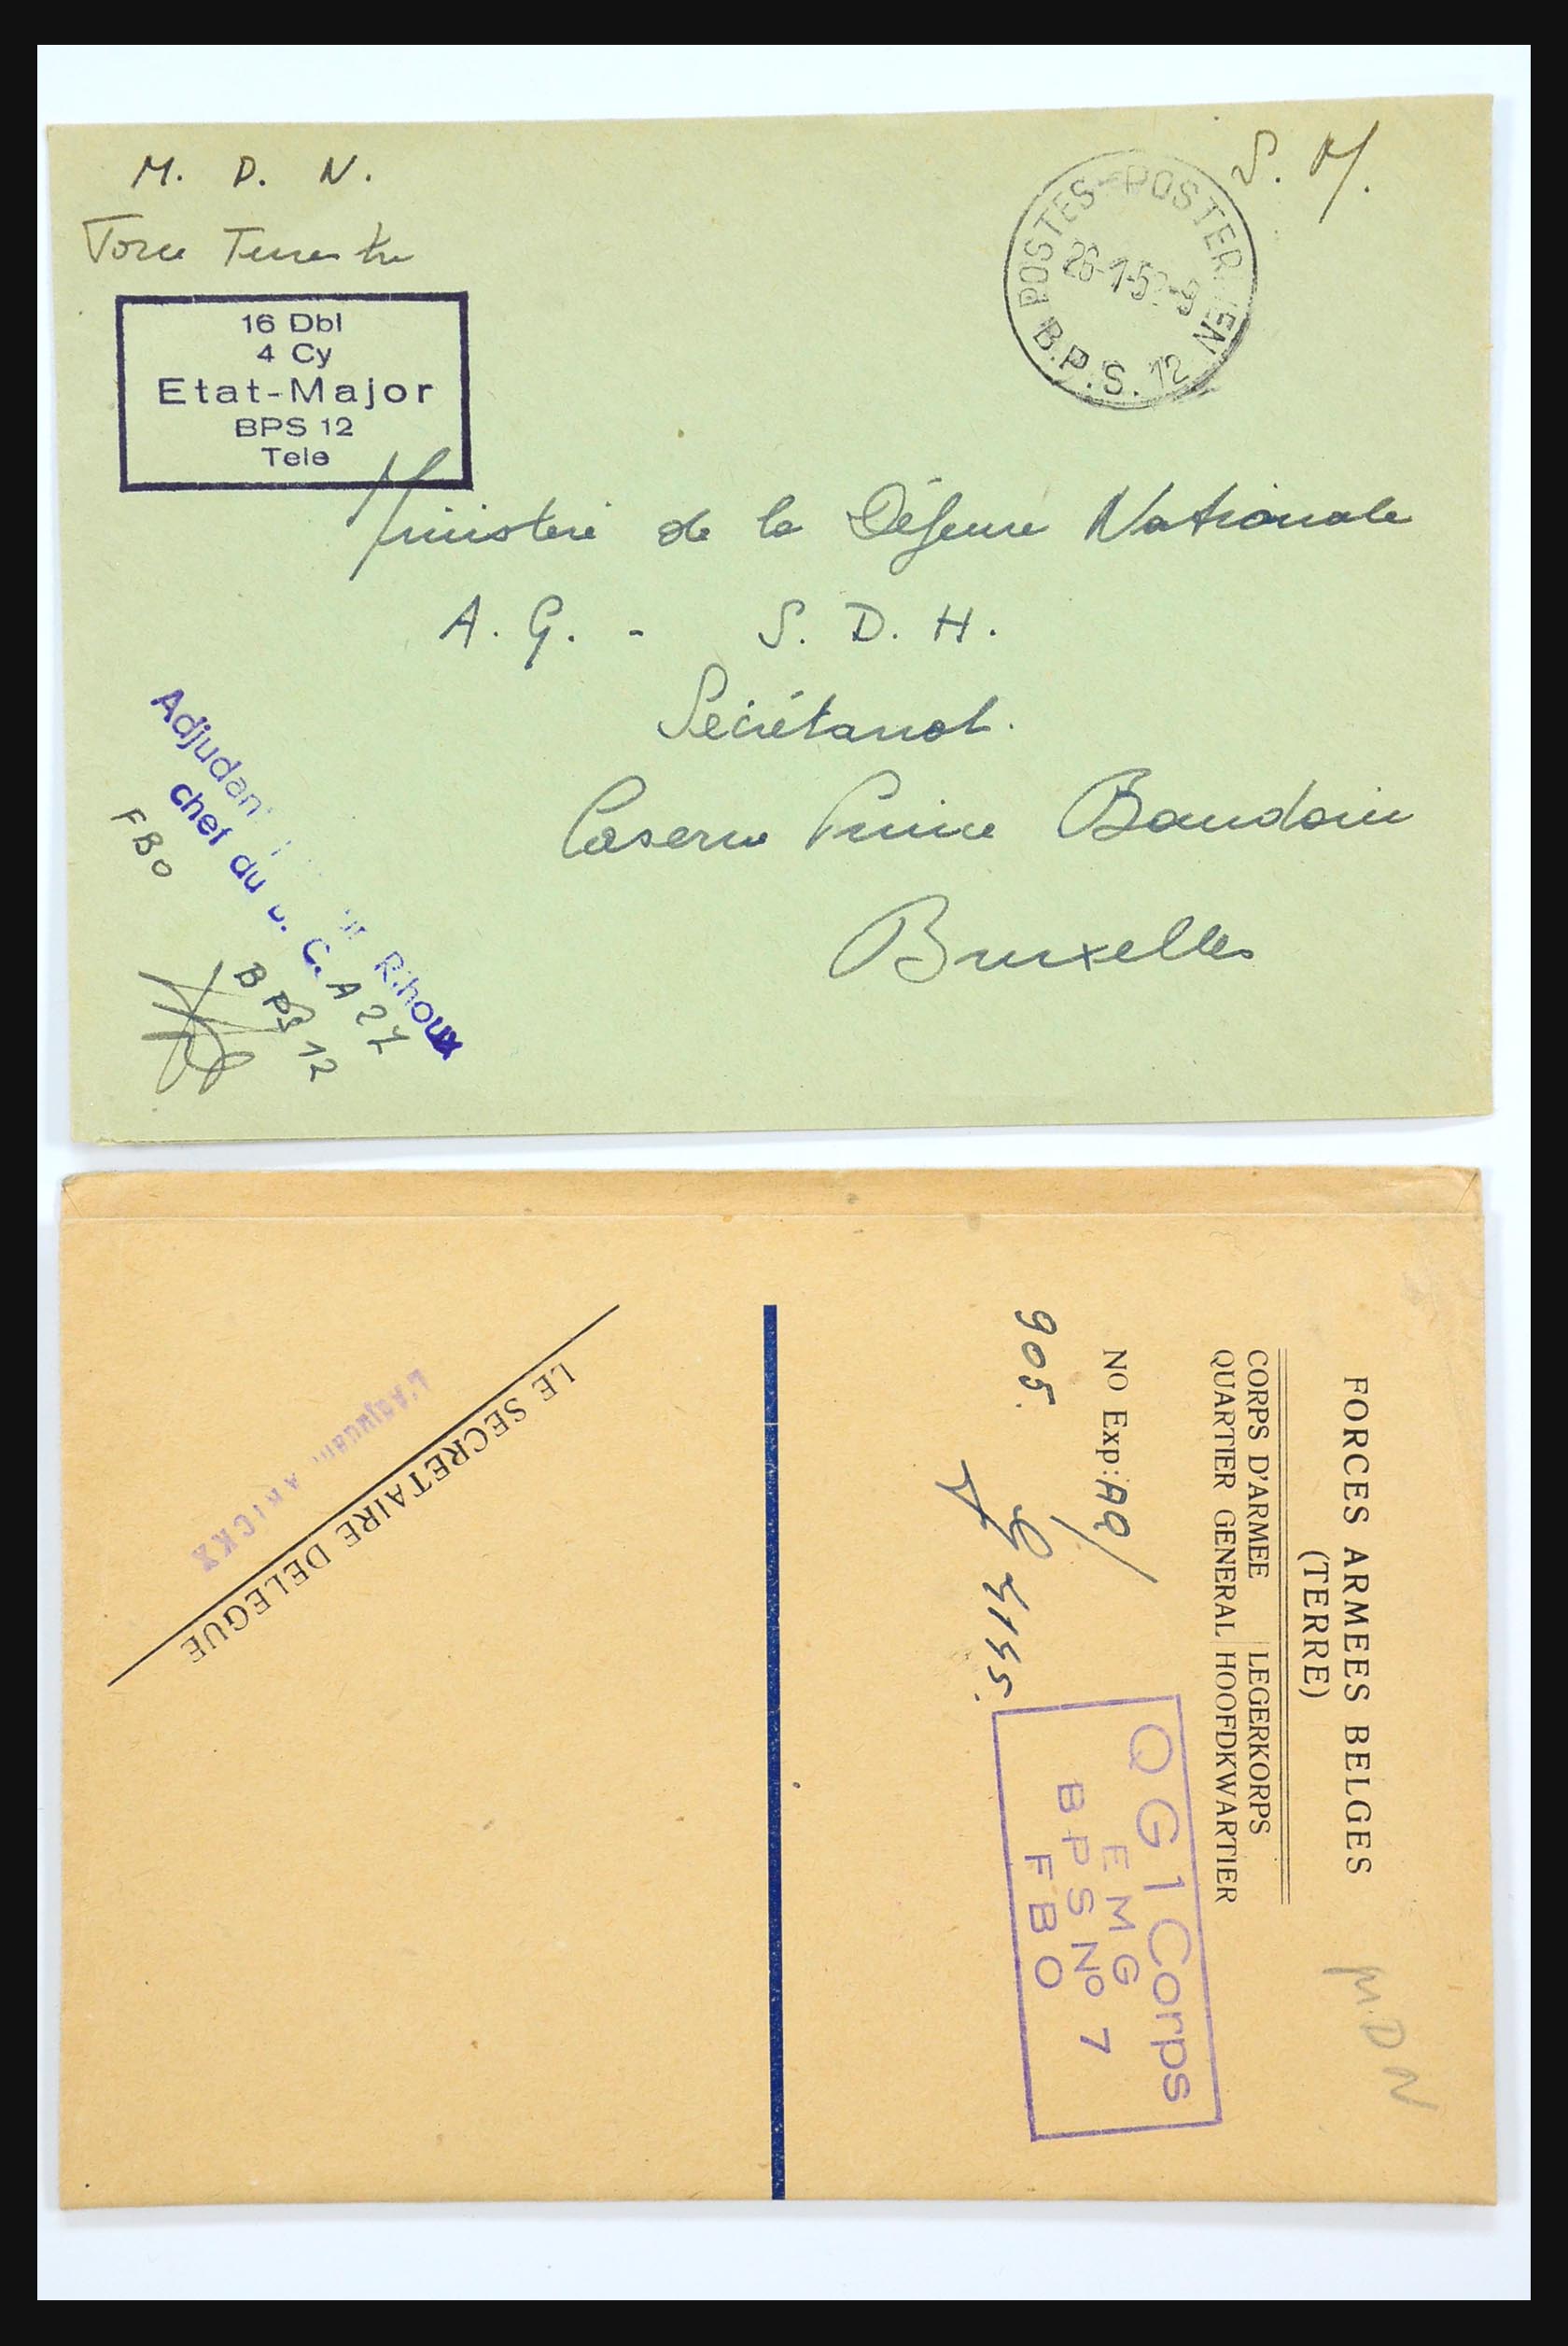 M. D. N.
S. M.
Force Terrestre
POSTES-POSTERIJEN
26-1-5 -9
B.P.S. 12
16 Dbl
4 Cy
Etat-Major
BPS 12
Tele
Ministère de la Défense Nationale
A. G. - S. D. H.
Secrétariat.
Caserne Prince Baudouin
Bruxelles
Adjudant Rihoux
chef du D. C. A 27
FBO
BPS 12
FORCES ARMEES BELGES
(TERRE)
CORPS D'ARMEE LEGERKORPS
QUARTIER GENERAL HOOFDKWARTIER
M.D N
NO Exp: AQ/
905.
4155.
Q G 1 Corps
E M G
B P S No 7
F B O
LE SECRETAIRE DELEGUE
L'Adjudant